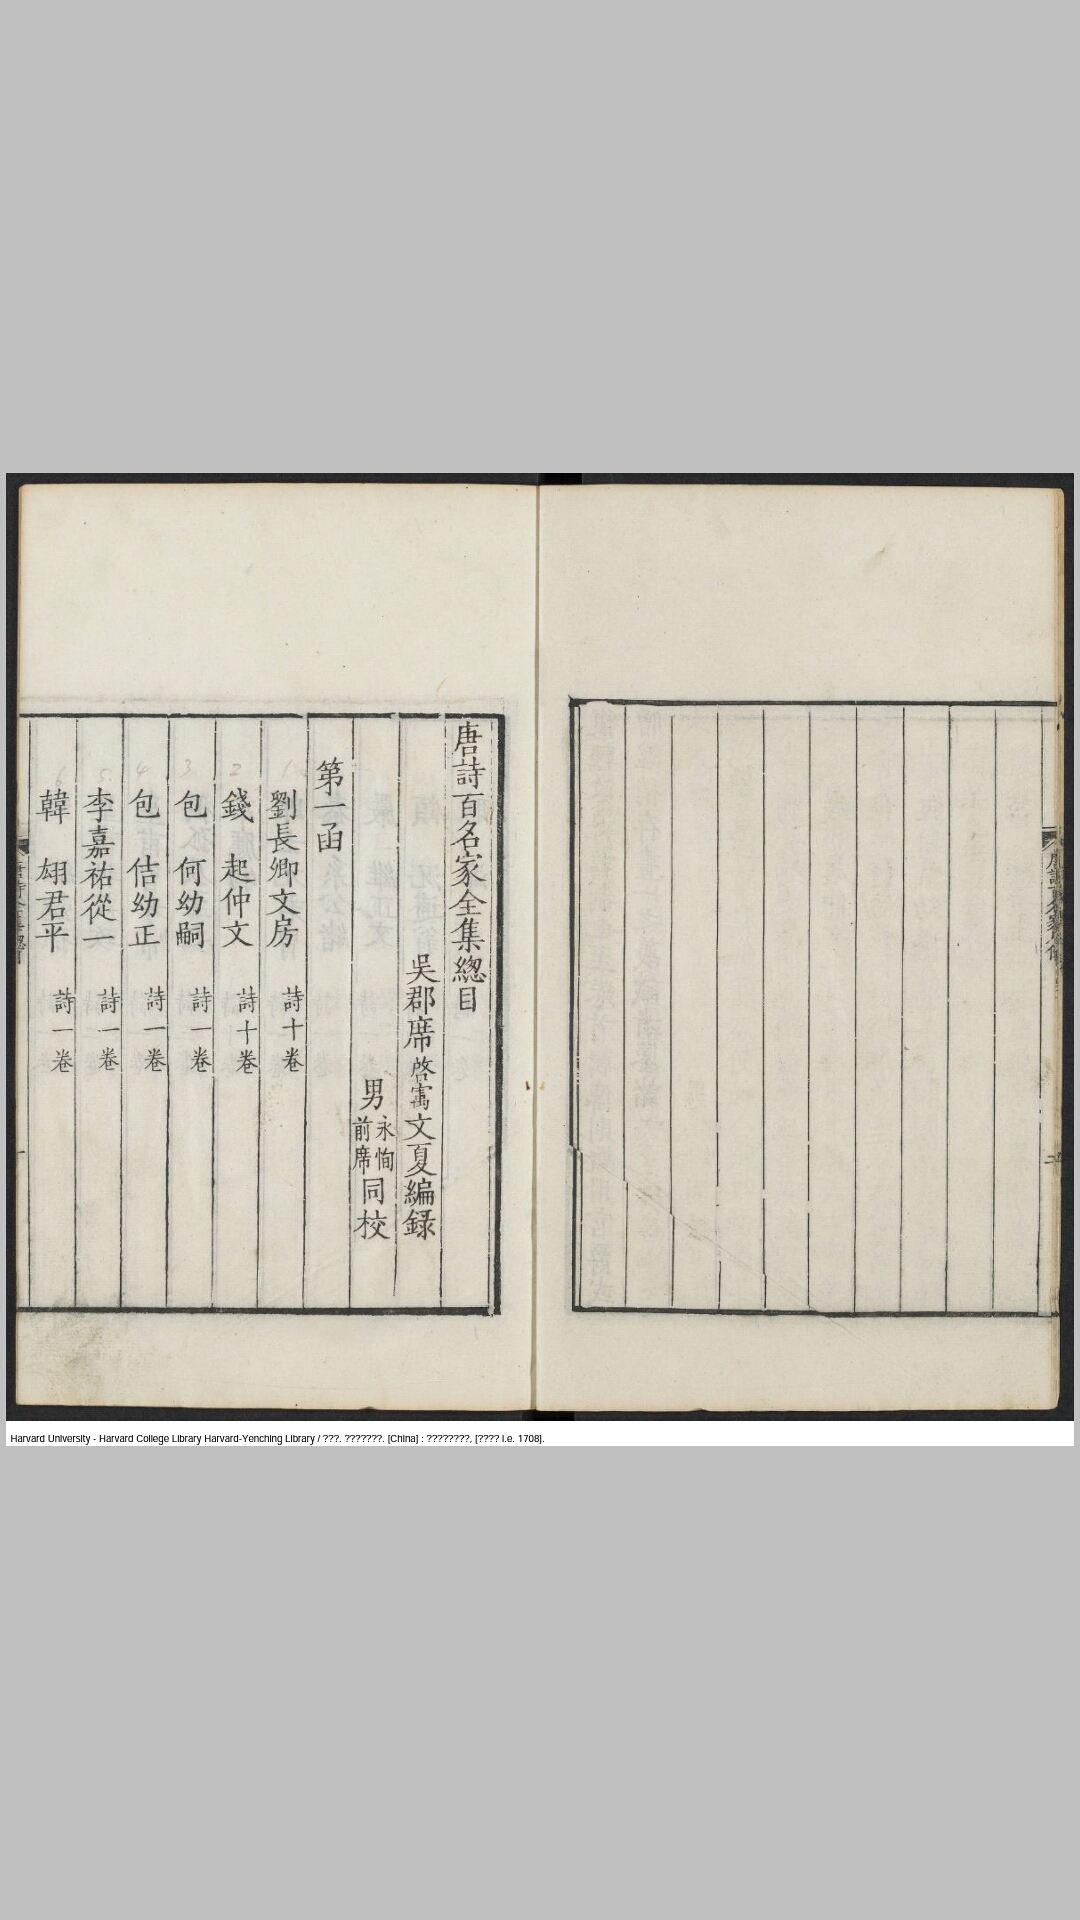 唐詩百名家全集總目
吳郡席啓寓文夏編錄
男永恂前席同校
第一函
劉長卿文房 詩十卷
錢起仲文 詩十卷
包何幼嗣 詩一卷
包佶幼正 詩一卷
李嘉祐從一 詩一卷
韓翃君平 詩一卷
1
2
3
4
5
6
Harvard University - Harvard College Library Harvard-Yenching Library / ???. ???????. [China] : ????????, [???? i.e. 1708].